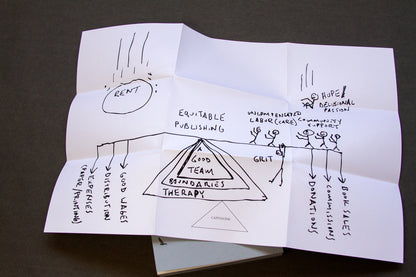 RENT
HOPE/
DELUSIONAL
PASSION
EQUITABLE
PUBLISHING
UNCOMPENSATED
LABOR (CARE)
COMMUNITY
SUPPORT
GRIT
A
GOOD
TEAM
BOUNDARIES
THERAPY
EXPENSES
(PAPER/PRINTING)
DISTRIBUTION
GOOD WAGES
DONATIONS
COMMISSIONS
BOOK SALES